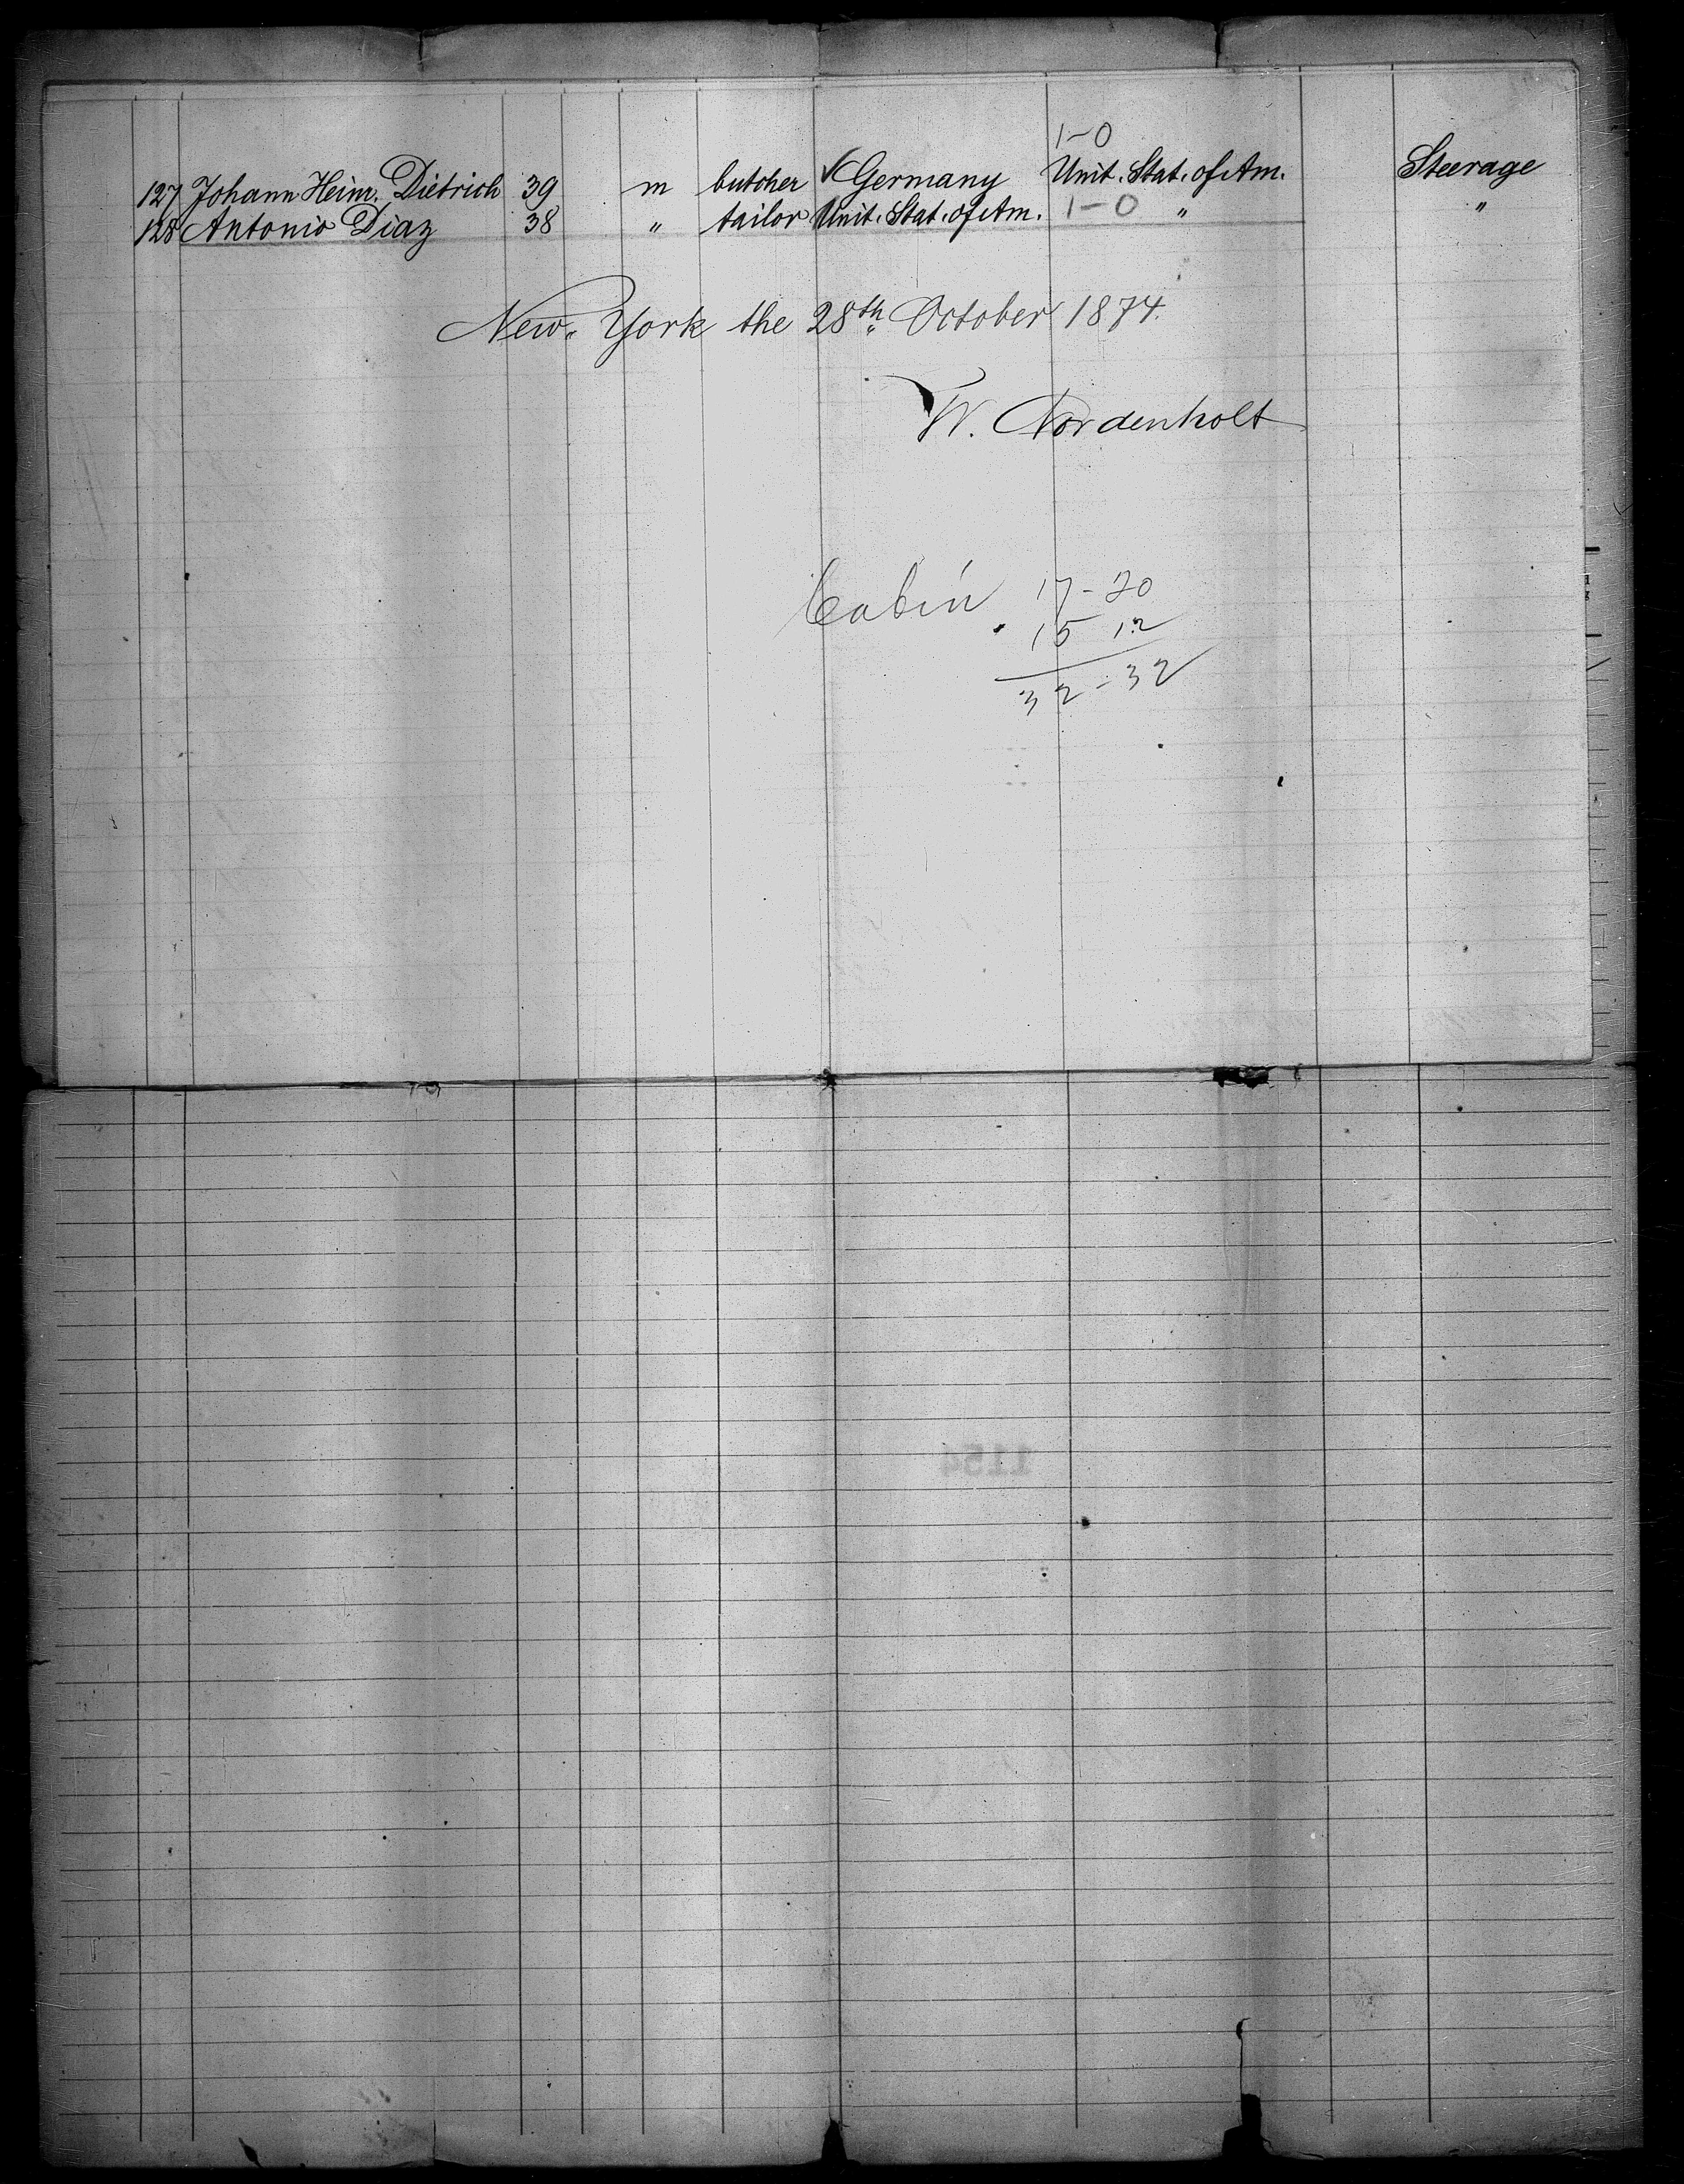 1-0
127 Johann Heinr. Dietrich 39 m butcher ✓ Germany Unit. Stat. of Am. Steerage
128 Antonio Diaz 38 " tailor Unit. Stat. of Am. 1-0 " "
New-York the 28th October 1874.
W. Nordenholt
Cabin 17-20
15 12
32-32
1154